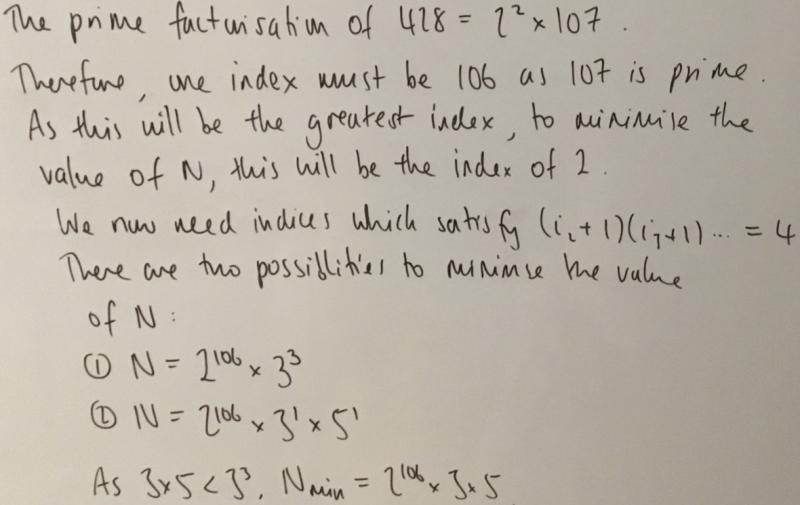 The prime factorisation of 428 = 2² × 107.
Therefore, one index must be 106 as 107 is prime.
As this will be the greatest index, to minimise the
value of N, this will be the index of 2.
We now need indices which satisfy (i₂+1)(i₃+1)... = 4
There are two possiblities to minimise the value
of N:
① N = 2¹⁰⁶ × 3³
② N = 2¹⁰⁶ × 3¹ × 5¹
As 3×5 < 3³, Nmin = 2¹⁰⁶ × 3 × 5